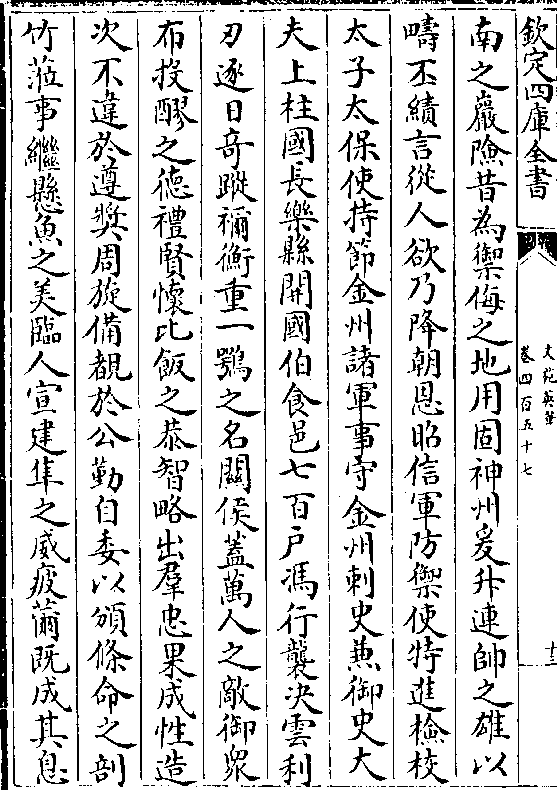 欽定四庫全書
文苑英華
卷四百五十七
十三
南之巖險昔為禦侮之地用固神州爰升連帥之雄以
疇丕績言從人欲乃降朝恩昭信軍防禦使特進檢校
太子太保使持節金州諸軍事守金州刺史兼御史大
夫上柱國長樂縣開國伯食邑七百户馮行襲决雲利
刃逐日竒蹤禰衡重一鶚之名關侯蓋萬人之敵御衆
布投醪之德禮賢懷比飯之恭智略出羣忠果成性造
次不違於遵奬周旋備覩於公勤自委以頒條命之剖
竹蒞事繼懸魚之美臨人宣建隼之威疲薾既成其息